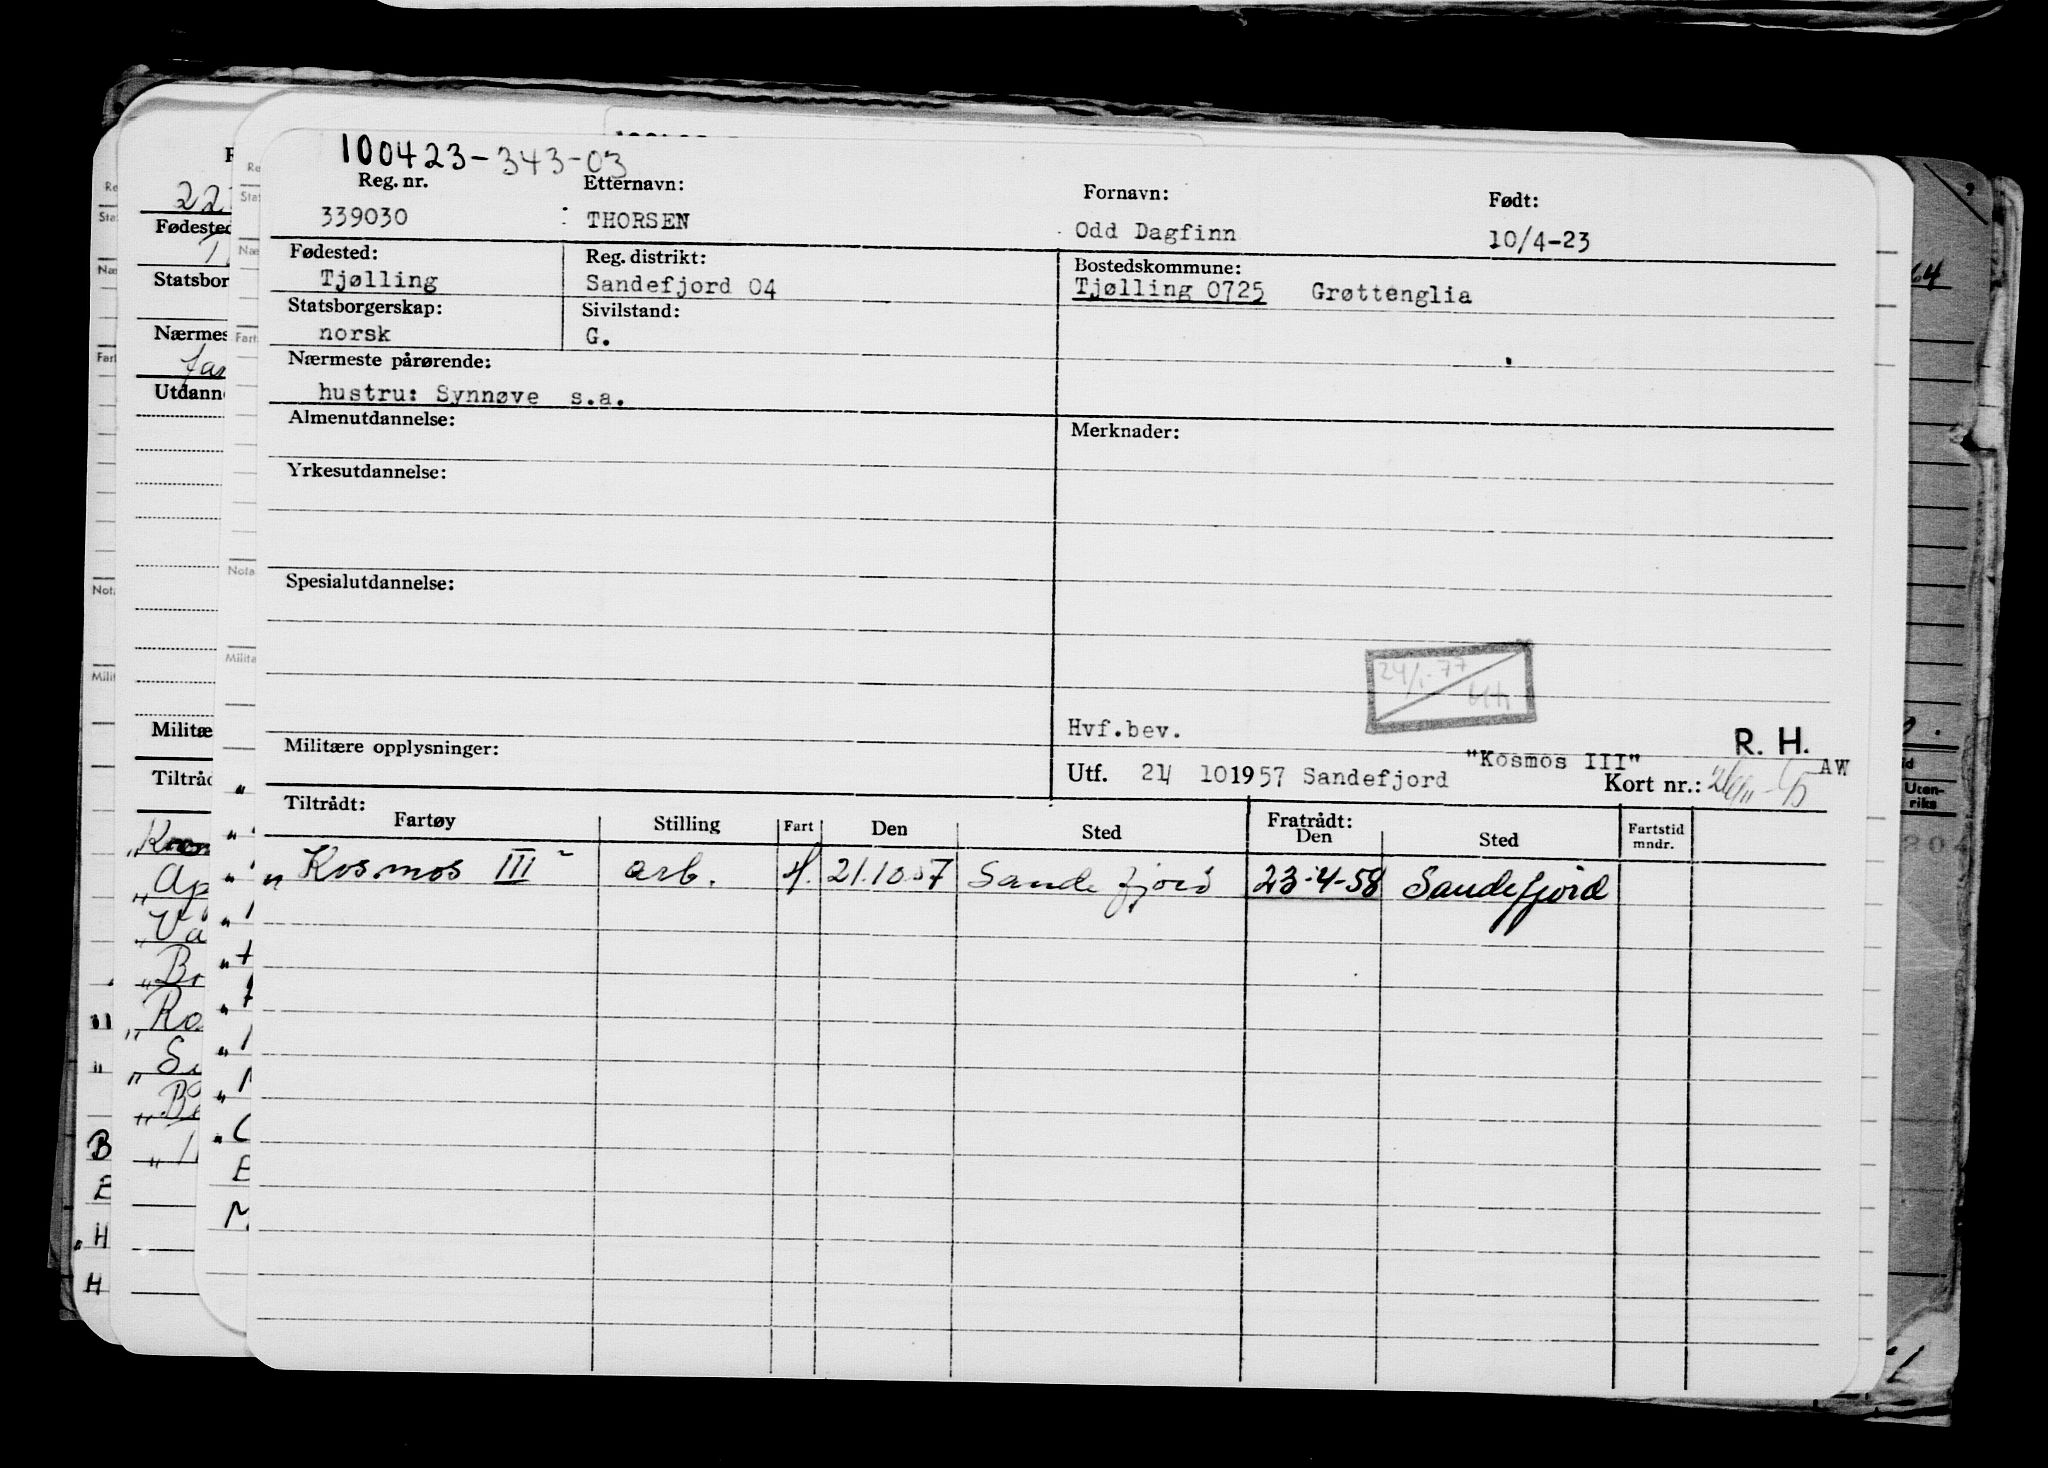 100423-343-03
Reg. nr. Etternavn: Fornavn: Født:
339030 THORSEN Odd Dagfinn 10/4-23
Fødested: Reg. distrikt: Bostedskommune:
Tjølling Sandefjord 04 Tjølling 0725 Grøttenglia
Statsborgerskap: Sivilstand:
norsk G.
Nærmeste pårørende:
hustru: Synnøve s.a.
Almenutdannelse: Merknader:
Yrkesutdannelse:
Spesialutdannelse:
24/1-77
Hvf.bev.
Militære opplysninger: "Kosmos III" R. H. AW
Utf. 21/ 10 1957 Sandefjord Kort nr.:
Tiltrådt: Fratrådt:
Fartøy Stilling Fart Den Sted Den Sted Fartstid mndr.
"Kosmos III" arb. H. 21.10.57 Sandefjord 23-4-58 Sandefjord